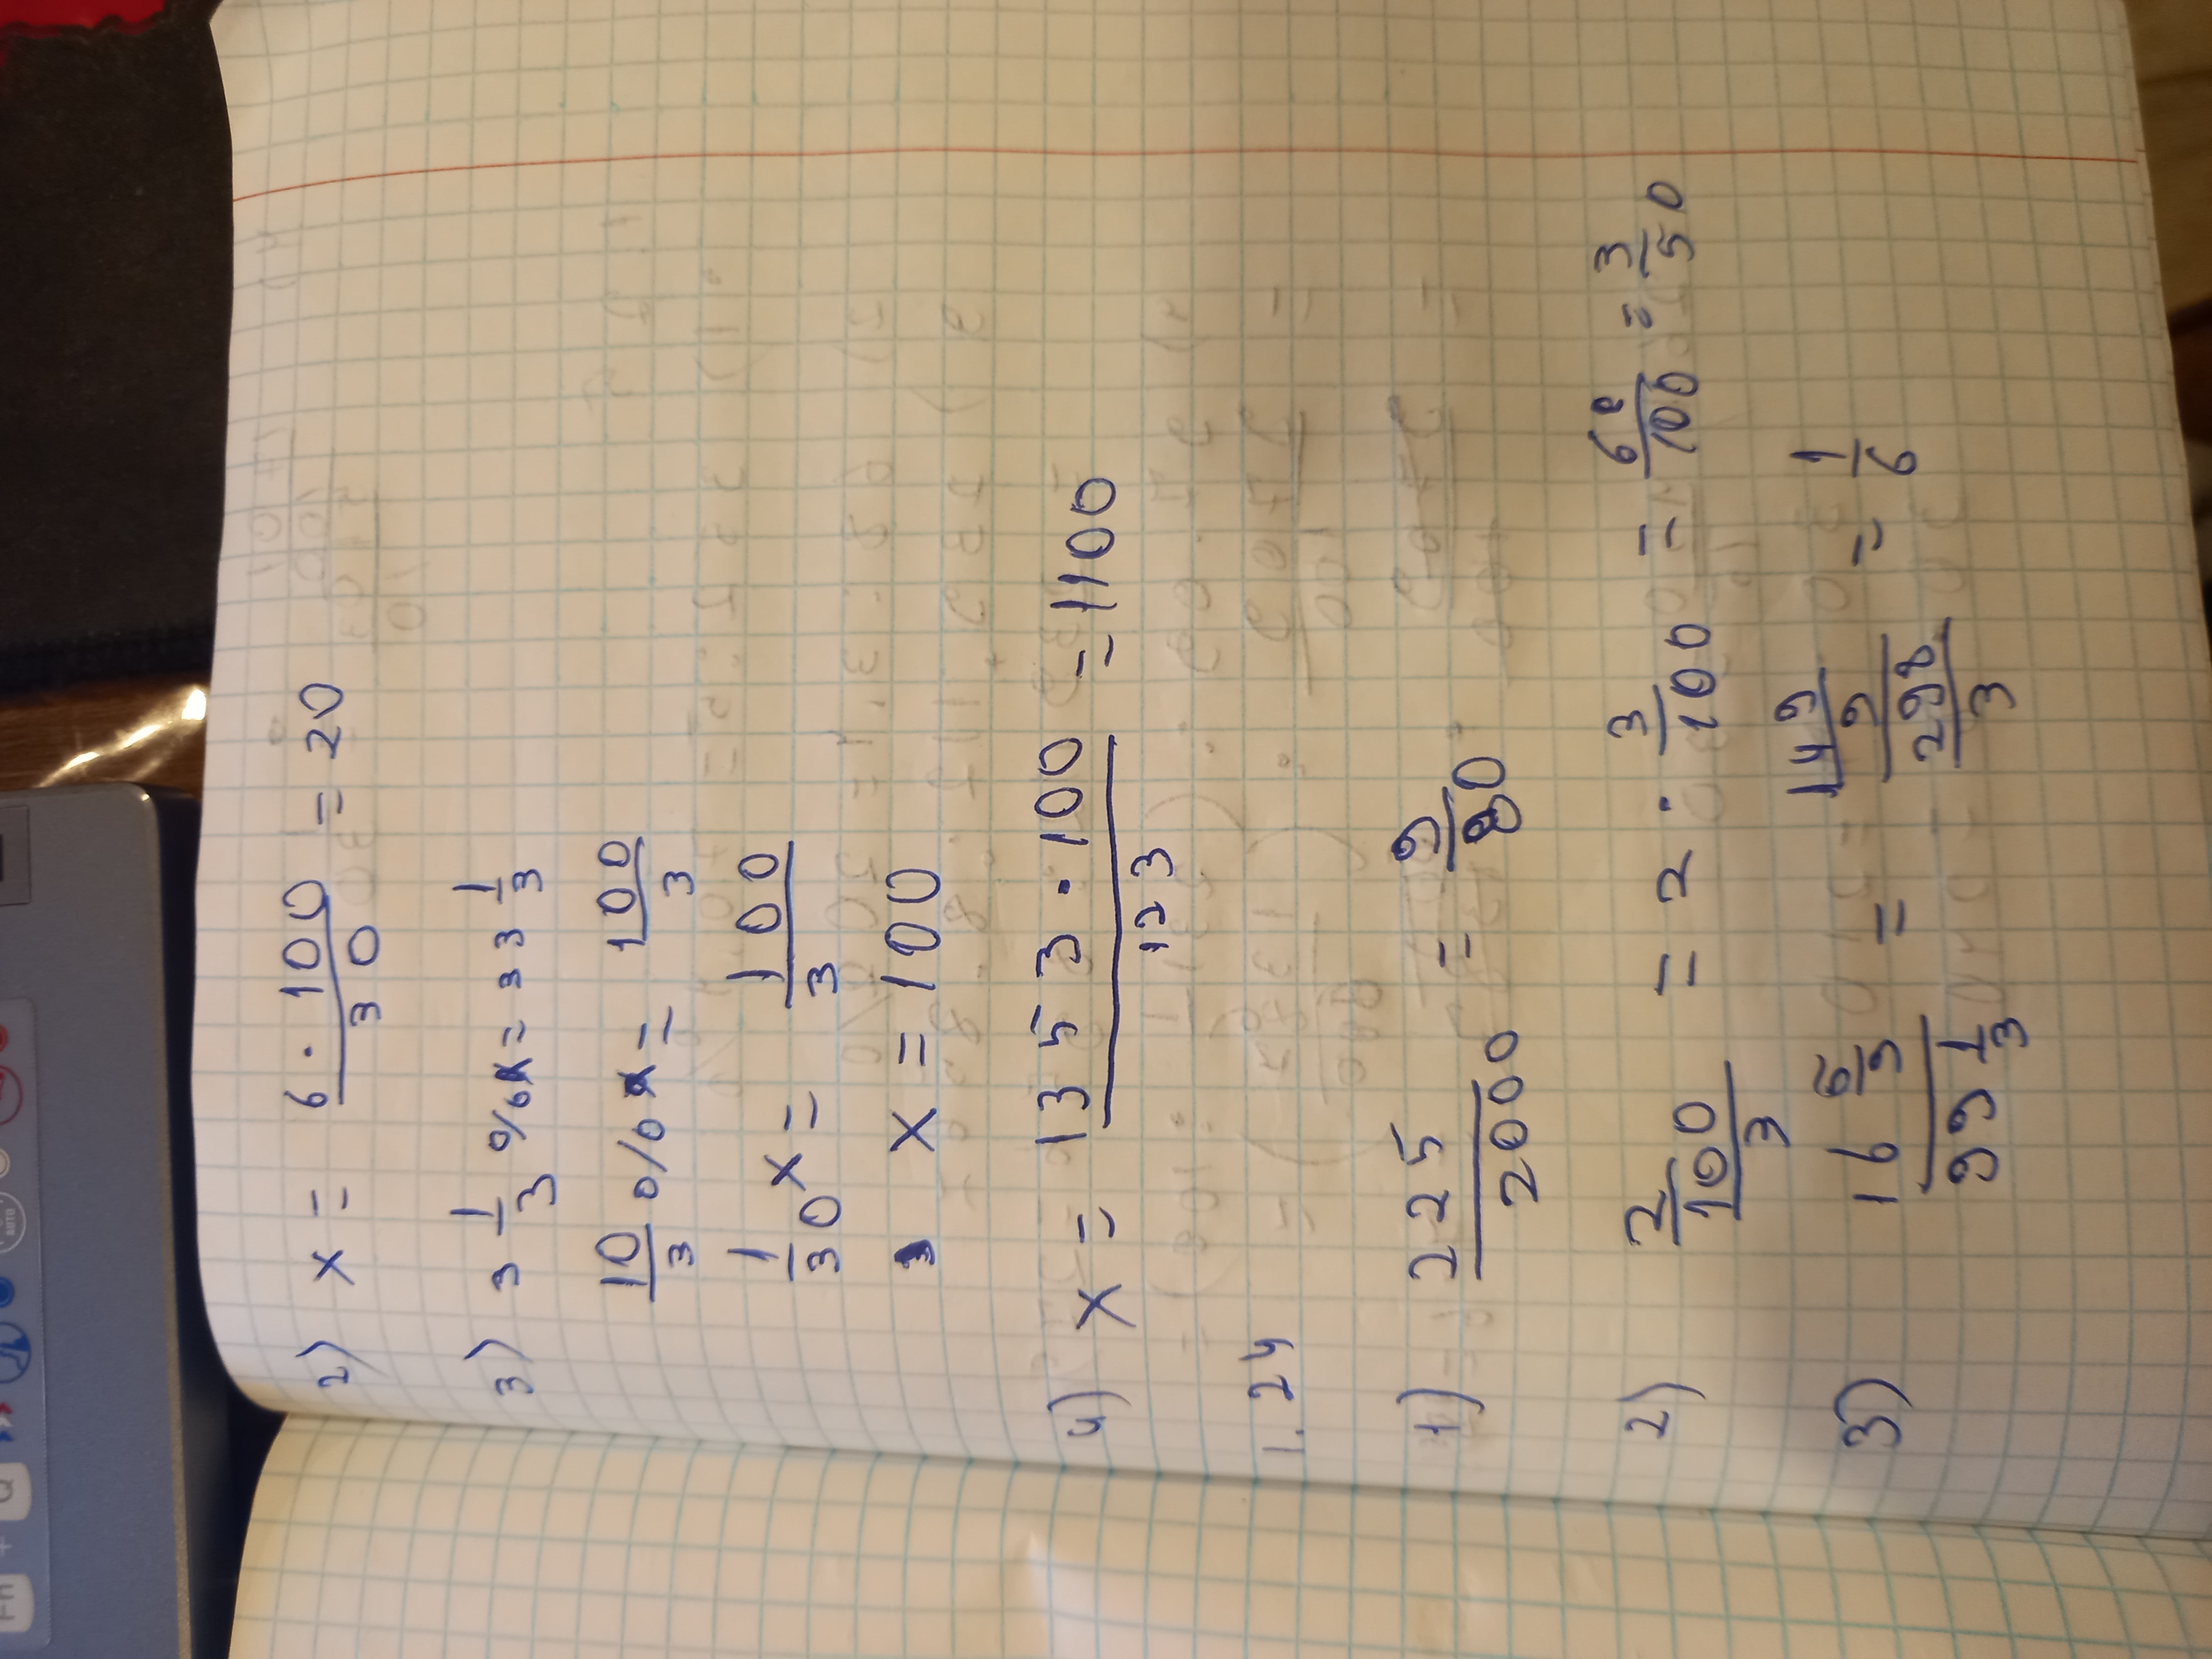 Fn + Q AUTO
2) x = 6 · 100 / 30 = 20
3) 3 1/3 % x = 33 1/3
10/3 % x = 100/3
1/30 x = 100/3
x = 100
4) x = 1353 · 100 / 123 = 1100
1.24
1) 225/2000 = 9/80
2) 2 / (100/3) = 2 · 3/100 = 6/100 = 3/50
3) 16 5/9 / 99 1/3 = (149/9) / (298/3) = 1/6